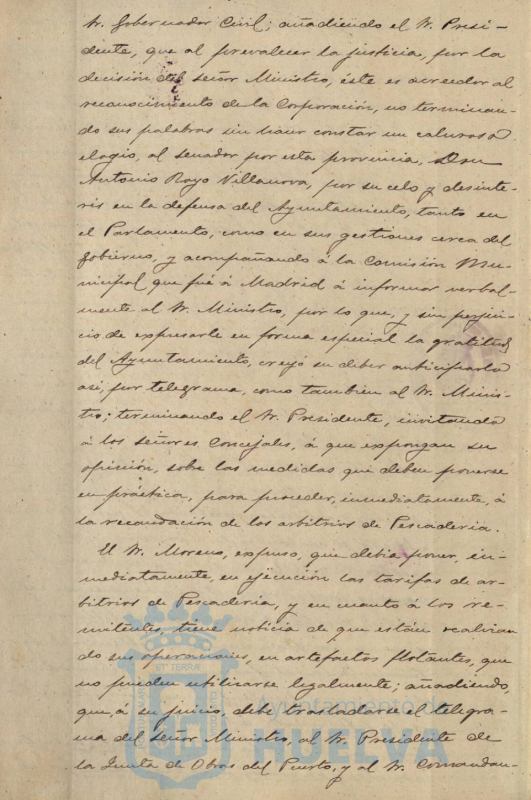 Sr. Gobernador Civil; añadiendo el Sr. Presi-
dente, que al prevalecer la justicia, por la
decisión del señor Ministro, éste es acreedor al
reconocimiento de la Corporación, no terminan-
do sus palabras sin hacer constar un caluroso
elogio, al senador por esta provincia, Don
Antonio Royo Villanova, por su celo y desinte-
rés en la defensa del Ayuntamiento, tanto en
el Parlamento, como en sus gestiones cerca del
Gobierno, y acompañando á la Comisión Mu-
nicipal que fué á Madrid á informar verbal-
mente al Sr. Ministro, por lo que, y sin perjui-
cio de expresarle en forma especial la gratitud
del Ayuntamiento, creyó su deber anticiparla
así, por telegrama, como también al Sr. Minis-
tro; terminando el Sr. Presidente, invitando
á los señores Concejales, á que expongan su
opinión, sobre las medidas que deben ponerse
en práctica, para proceder, inmediatamente, á
la recaudación de los arbitrios de Pescadería.
El Sr. Moreno, expuso, que debía poner, in-
mediatamente, en ejecución las tarifas de ar-
bitrios de Pescadería, y en cuanto á los re-
mitentes, tiene noticia de que están realizan
do sus operaciones, en artefactos flotantes, que
no pueden utilizarse legalmente; añadiendo,
que, á su juicio, debe trasladarse el telegra-
ma del señor Ministro, al Sr. Presidente de
la Junta de Obras del Puerto, y al Sr. Comandan-
ET TERRA
Ayuntamiento de
HUELVA